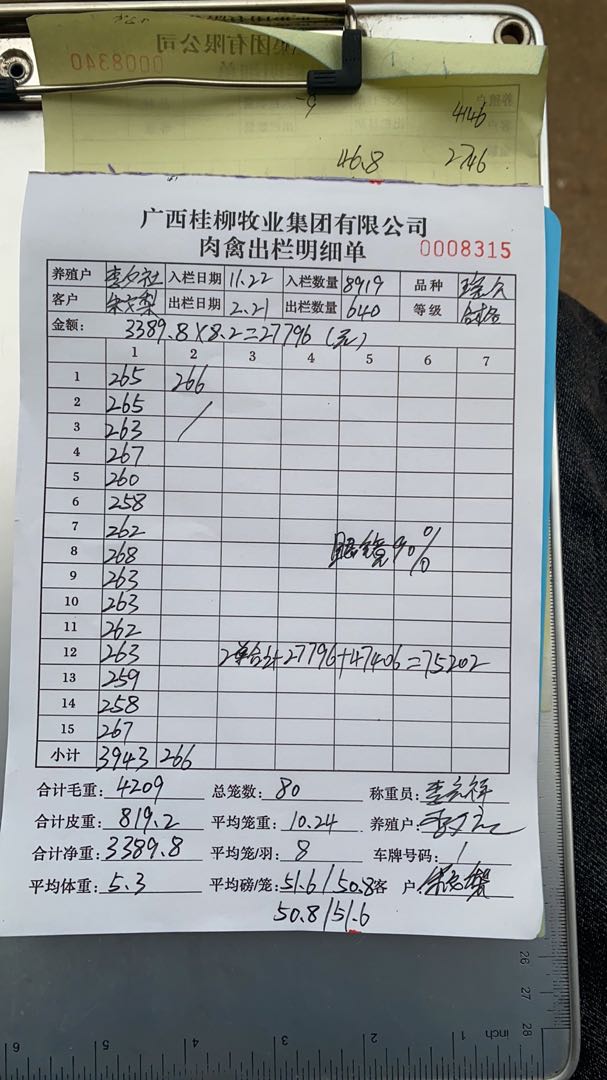 4146
46.8 2746
广西桂柳牧业集团有限公司
肉禽出栏明细单 0008315
养殖户 李夕社 入栏日期 11.22 入栏数量 8919 品种
客户 出栏日期 2.21 出栏数量 640 等级 合格
金额: 3389.8×8.2=27796(元)
1 2 3 4 5 6 7
1 265 266
2 265
3 263 /
4 267
5 260
6 258
7 262
8 268 眼镜90%
9 263
10 263
11 262
12 263 2单合计27796+47406=75202
13 259
14 258
15 267
小计 3943 266
合计毛重: 4209 总笼数: 80 称重员:
合计皮重: 819.2 平均笼重: 10.24 养殖户:
合计净重: 3389.8 平均笼/羽: 8 车牌号码: /
平均体重: 5.3 平均磅/笼: 51.6/50.8 客户
50.8/51.6